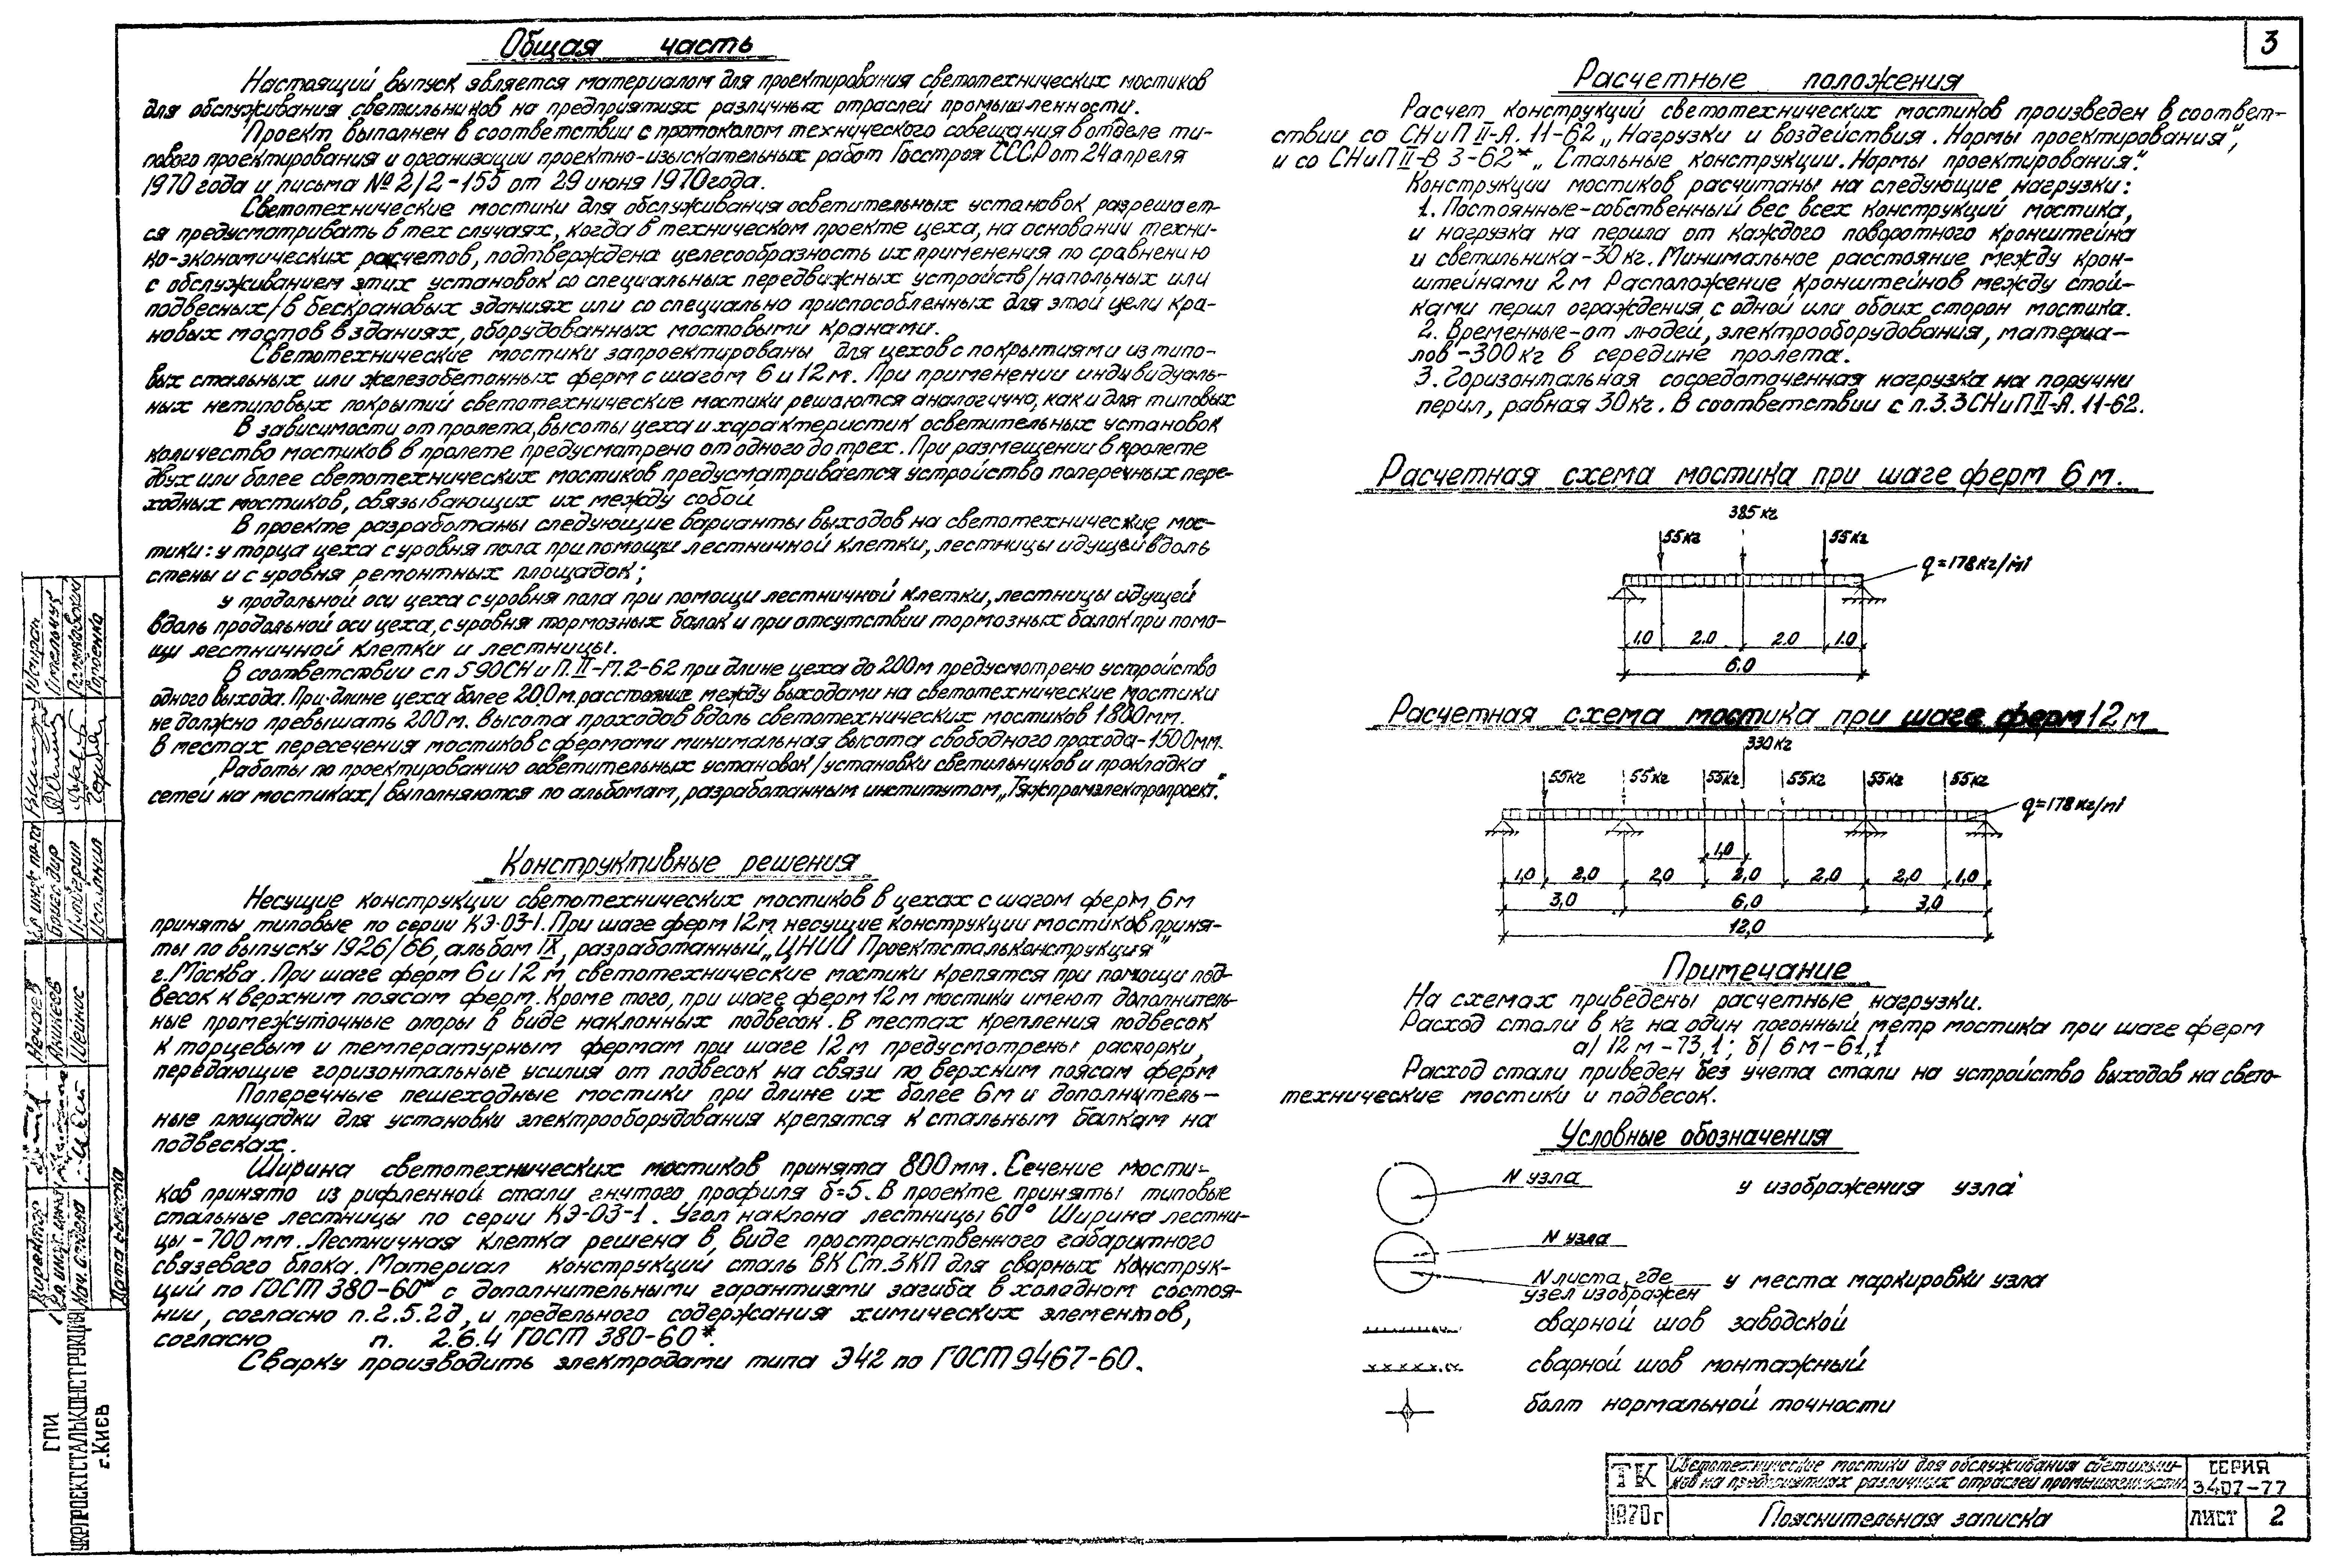 3
Общая часть
Настоящий выпуск является материалом для проектирования светотехнических мостиков
для обслуживания светильников на предприятиях различных отраслей промышленности.
Проект выполнен в соответствии с протоколом технического совещания в отделе ти-
пового проектирования и организации проектно-изыскательных работ Госстроя СССР от 24 апреля
1970 года и письма № 2/2-155 от 29 июня 1970 года.
Светотехнические мостики для обслуживания осветительных установок разрешает-
ся предусматривать в тех случаях, когда в техническом проекте цеха, на основании техни-
ко-экономических расчетов, подтверждена целесообразность их применения по сравнению
с обслуживанием этих установок со специальных передвижных устройств/напольных или
подвесных/в бескрановых зданиях или со специально приспособленных для этой цели кра-
новых мостов в зданиях, оборудованных мостовыми кранами.
Светотехнические мостики запроектированы для цехов с покрытиями из типо-
вых стальных или железобетонных ферм с шагом 6 и 12 м. При применении индивидуаль-
ных нетиповых покрытий светотехнические мостики решаются аналогично, как и для типовых
В зависимости от пролета, высоты цеха и характеристик осветительных установок
количество мостиков в пролете предусмотрено от одного до трех. При размещении в пролете
двух или более светотехнических мостиков предусматривается устройство поперечных пере-
ходных мостиков, связывающих их между собой
В проекте разработаны следующие варианты выходов на светотехнические мос-
тики: у торца цеха с уровня пола при помощи лестничной клетки, лестницы идущей вдоль
стены и с уровня ремонтных площадок;
у продольной оси цеха с уровня пола при помощи лестничной клетки, лестницы идущей
вдоль продольной оси цеха, с уровня тормозных балок и при отсутствии тормозных балок при помо-
щи лестничной клетки и лестницы.
В соответствии с п 5 90 СН и П. II-М.2-62 при длине цеха до 200 м предусмотрено устройство
одного выхода. При длине цеха более 200 м. расстояние между выходами на светотехнические мостики
не должно превышать 200 м. Высота проходов вдоль светотехнических мостиков 1800 мм.
В местах пересечения мостиков с фермами минимальная высота свободного прохода-1500 мм.
Работы по проектированию осветительных установок/установки светильников и прокладка
сетей на мостиках/ выполняются по альбомам, разработанным институтом „Тяжпромэлектропроект".
Конструктивные решения
Несущие конструкции светотехнических мостиков в цехах с шагом ферм 6 м
приняты типовые по серии КЭ-03-1. При шаге ферм 12 м несущие конструкции мостиков приня-
ты по выпуску 1926/66, альбом IX, разработанный „ЦНИИ Проектстальконструкция"
г. Москва. При шаге ферм 6 и 12 м светотехнические мостики крепятся при помощи под-
весок к верхним поясам ферм. Кроме того, при шаге ферм 12 м мостики имеют дополнитель-
ные промежуточные опоры в виде наклонных подвесок. В местах крепления подвесок
к торцевым и температурным фермам при шаге 12 м предусмотрены распорки,
передающие горизонтальные усилия от подвесок на связи по верхним поясам ферм
Поперечные пешеходные мостики при длине их более 6 м и дополнитель-
ные площадки для установки электрооборудования крепятся к стальным балкам на
подвесках.
Ширина светотехнических мостиков принята 800 мм. Сечение мости-
ков принято из рифленной стали гнутого профиля δ=5. В проекте приняты типовые
стальные лестницы по серии КЭ-03-1. Угол наклона лестницы 60° Ширина лестни-
цы - 700 мм. Лестничная клетка решена в виде пространственного габаритного
связевого блока. Материал конструкций сталь ВК Ст.3 КП для сварных конструк-
ций по ГОСТ 380-60* с дополнительными гарантиями загиба в холодном состоя-
нии, согласно п.2.5.2д, и предельного содержания химических элементов,
согласно п. 2.6.4 ГОСТ 380-60*.
Сварку производить электродами типа Э42 по ГОСТ 9467-60.
Расчетные положения
Расчет конструкций светотехнических мостиков произведен в соответ-
ствии со СН и П II-А. 11-62 „Нагрузки и воздействия. Нормы проектирования",
и со СН и П II-В 3-62* „Стальные конструкции. Нормы проектирования".
Конструкции мостиков расчитаны на следующие нагрузки:
1. Постоянные-собственный вес всех конструкций мостика,
и нагрузка на перила от каждого поворотного кронштейна
и светильника-30 кг. Минимальное расстояние между крон-
штейнами 2 м Расположение кронштейнов между стой-
ками перил ограждения с одной или обоих сторон мостика.
2. Временные-от людей, электрооборудования, материа-
лов-300 кг в середине пролета.
3. Горизонтальная сосредоточенная нагрузка на поручни
перил, равная 30 кг. В соответствии с п.3.3 СН и П II-А. 11-62.
Расчетная схема мостика при шаге ферм 6 м.
385 кг
55 кг 55 кг
q=178 кг/мl
1.0 2.0 2.0 1.0
6,0
Расчетная схема мостика при шаге ферм 12 м
330 кг
55 кг 55 кг 55 кг 55 кг 55 кг 55 кг
q=178 кг/мl
1,0
1,0 2,0 2,0 2,0 2,0 2,0 1,0
3,0 6,0 3,0
12,0
Примечание
На схемах приведены расчетные нагрузки.
Расход стали в кг на один погонный метр мостика при шаге ферм
а/ 12 м - 73,1; б/ 6 м - 61,1
Расход стали приведен без учета стали на устройство выходов на свето-
технические мостики и подвесок.
Условные обозначения
N узла у изображения узла
N узла
N листа, где
узел изображен у места маркировки узла
сварной шов заводской
сварной шов монтажный
болт нормальной точности
ТК
1970 г
Светотехнические мостики для обслуживания светильни-
ков на предприятиях различных отраслей промышленности
Пояснительная записка
СЕРИЯ
3.407-77
ЛИСТ 2
ГПИ
УКРПРОЕКТСТАЛЬКОНСТРУКЦИЯ
г. КИЕВ
Директор
Гл. инж.
Нач. отдела
Дата выпуска
Нечаев
Аникеев
Шейнис
Гл. инж. пр-та
Исполнил